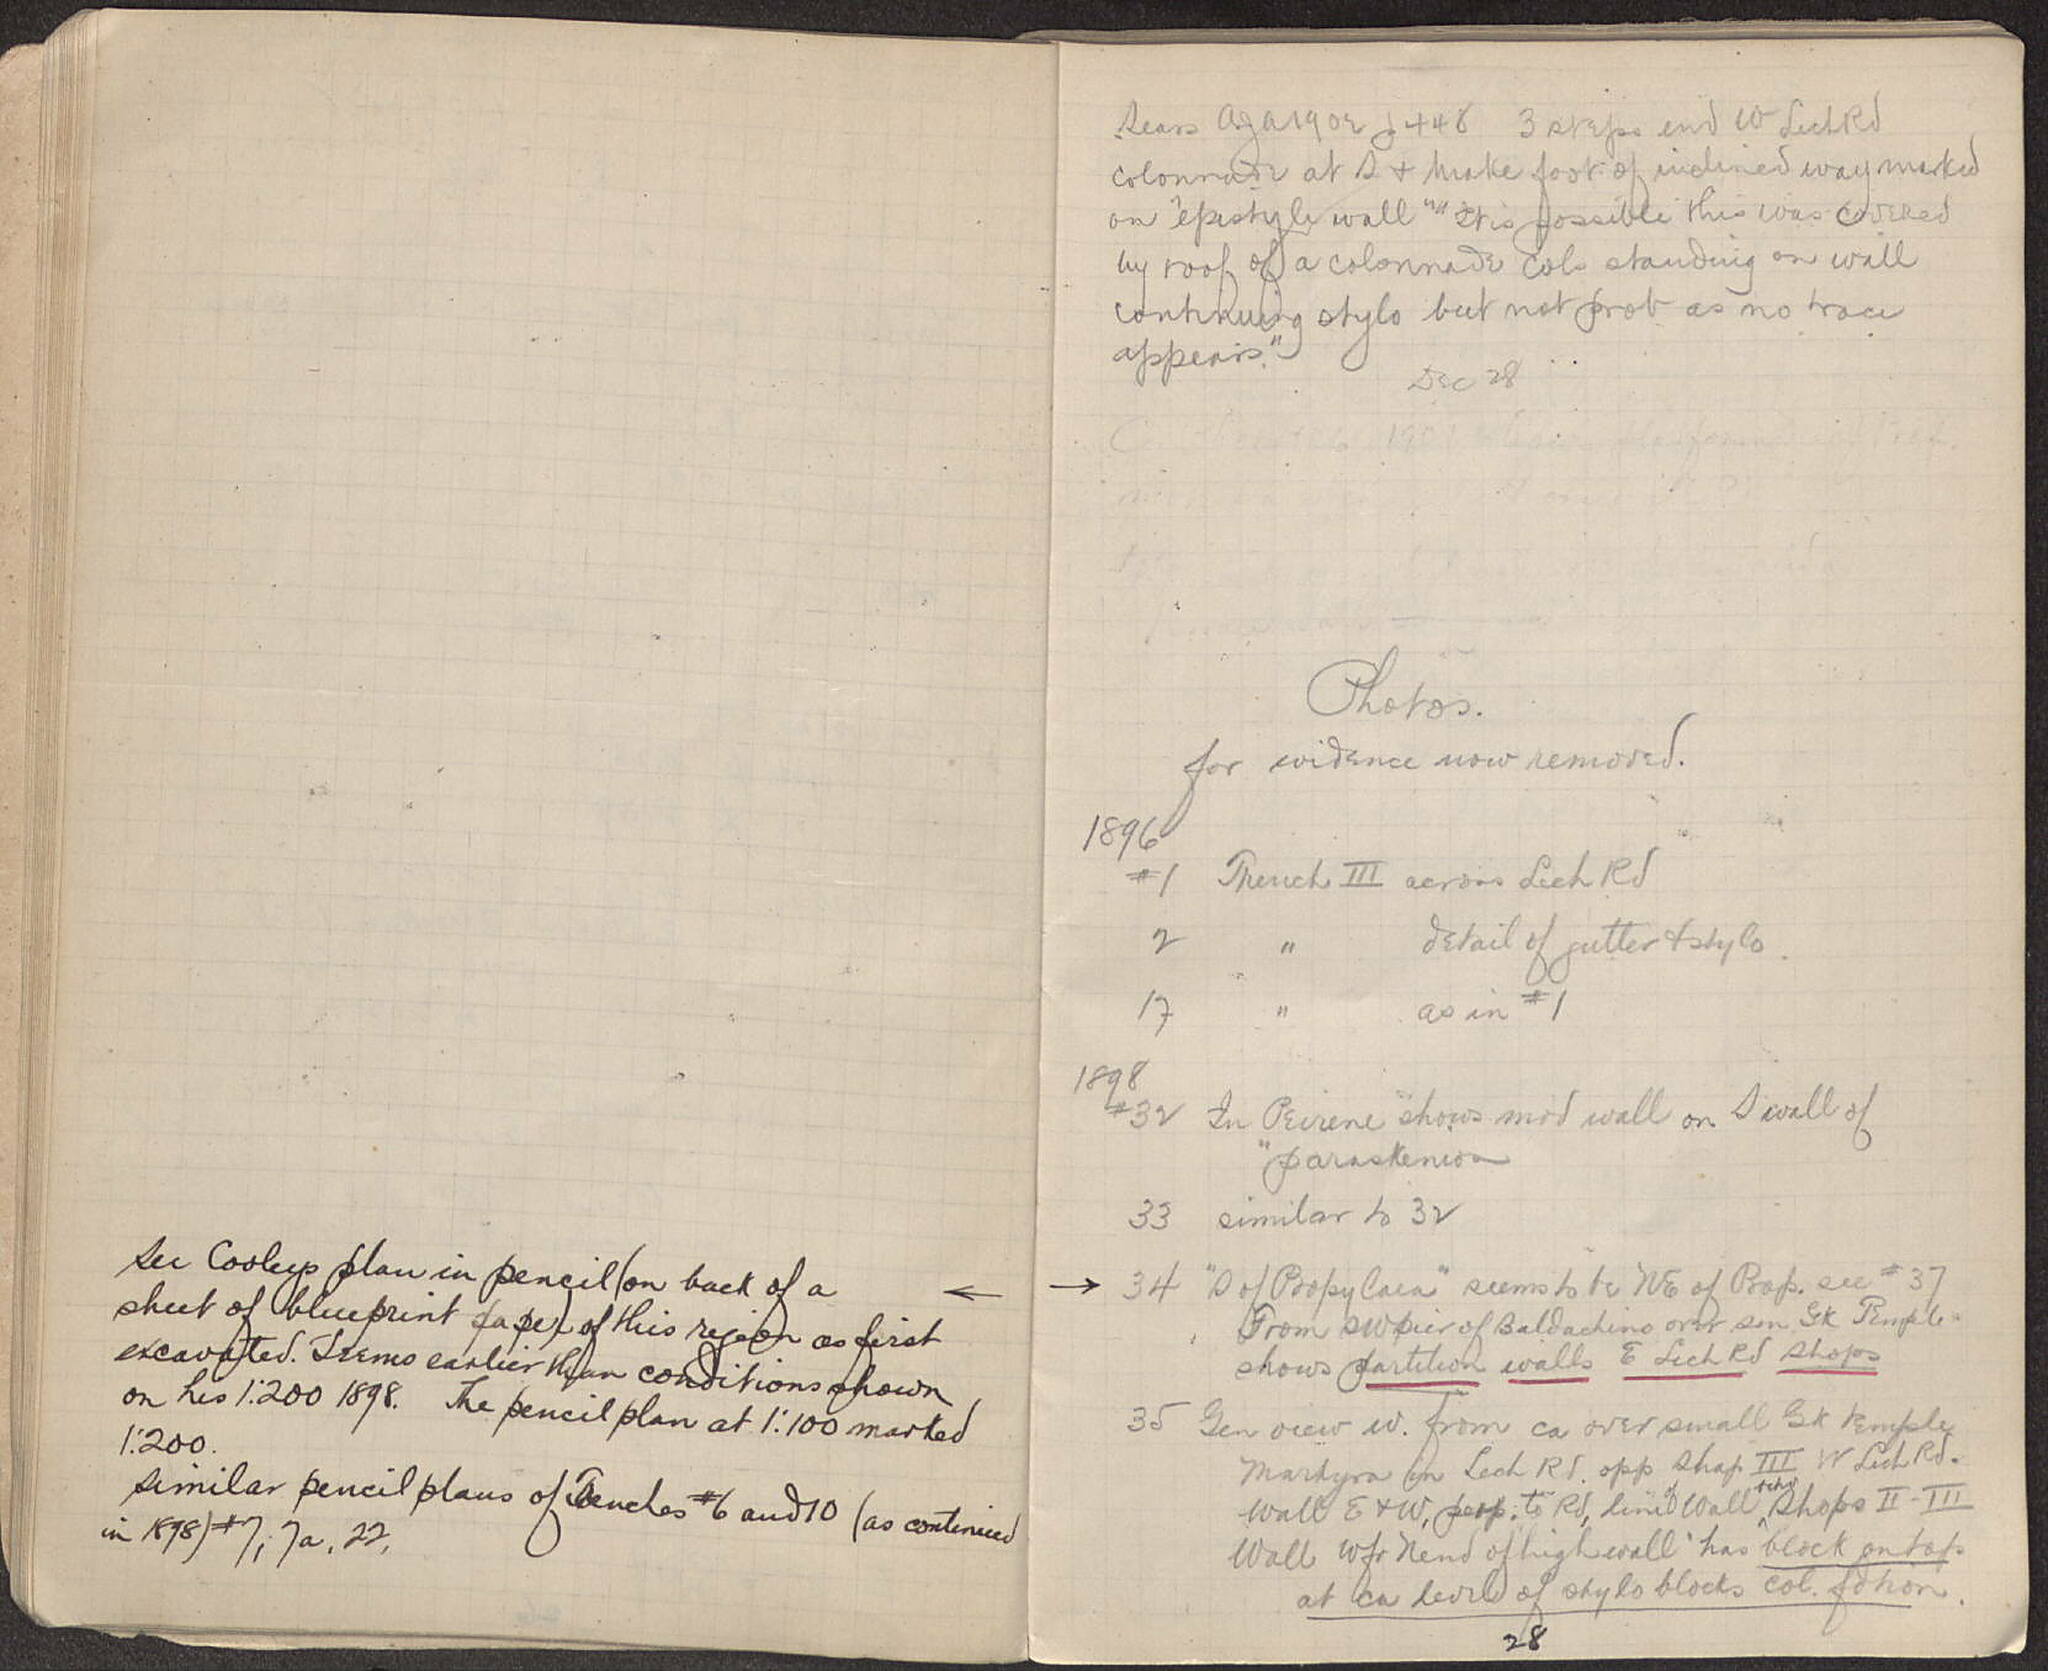 See Cooleys plan in pencil (on back of a
sheet of blueprint paper) of this region as first
excavated. Seems earlier than conditions shown
on his 1:200 1898. The pencil plan at 1:100 marked
1:200.
Similar pencil plans of Trenches #6 and 10 (as continued
in 1898) #7, 7a, 22,
←
Sears AJA 1902 p 448 3 steps end W Lech Rd
colonnade at S + make foot of inclined way marked
on "epistyle wall" "It is possible this was covered
by roof of a colonnade cols standing on wall
continuing stylo but not prob as no trace
appears."
Dec 28
Photos.
for evidence now removed.
1896
#1 Trench III across Lech Rd
2 " detail of gutter & stylo.
17 " as in #1
1898
#32 In Peirene shows mod wall on S wall of
"paraskenion
33 similar to 32
→ 34 "S of Propylaea" seems to be NE of Prop. see #37
From SW pier of Baldachino over sm Gk Temple
shows partition walls E Lech Rd shops
35 Gen view W. from ca over small Gk temple
Martyra in Lech Rd. opp shop III W Lech Rd.
Wall E & W, perp. to Rd, line of Wall Shops II-III
Wall W fr N end of high wall has block on top
at ca level of stylo blocks col.
28